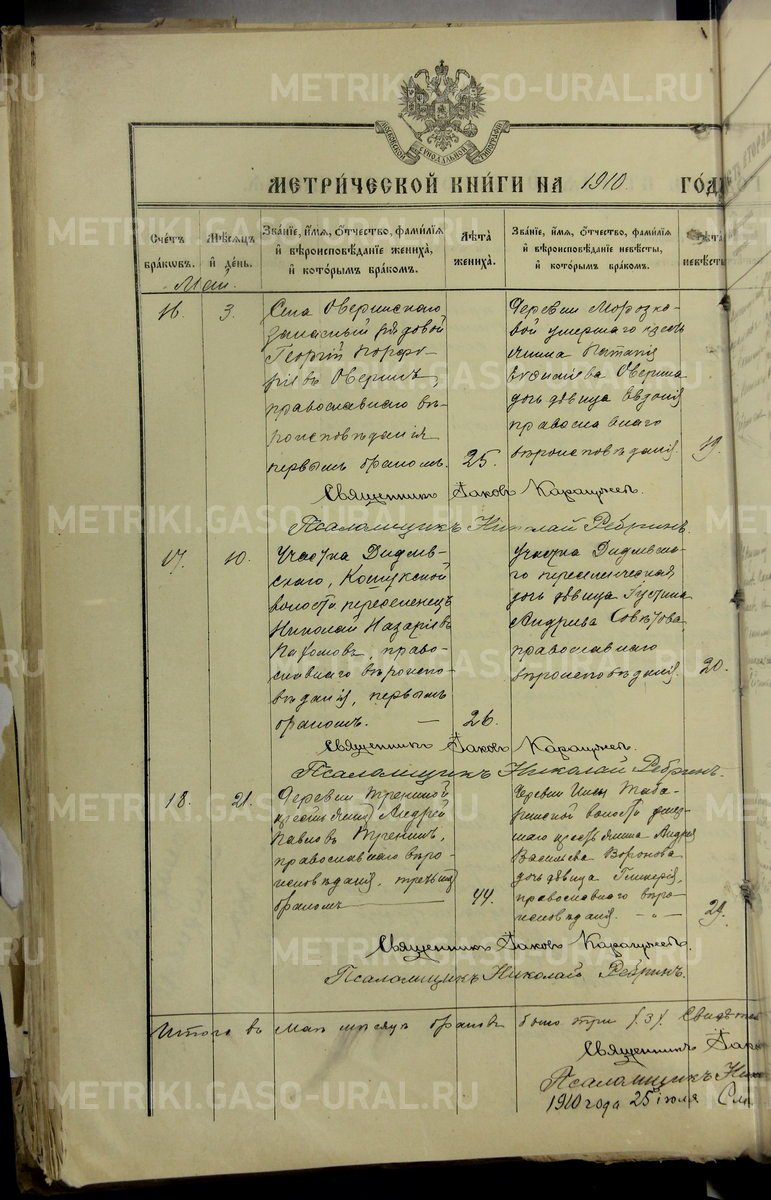 METRIKI.GASO-URAL.RU
МОСКОВСКОЙ СѴНОДАЛЬНОЙ ТИПОГРАФІИ
МЕТРИЧЕСКОЙ КНИГИ НА 1910 ГОДЪ
Счетъ браковъ.
Мѣсяцъ и день.
Званіе, имя, отчество, фамилія и вѣроисповѣданіе жениха, и которымъ бракомъ.
Лѣта жениха.
Званіе, имя, отчество, фамилія и вѣроисповѣданіе невѣсты, и которымъ бракомъ.
Лѣта невѣсты
Май.
16. 3.
Села Оверинскаго
запасный рядовой
Георгій Порфи-
ріевъ Оверинъ,
православнаго вѣ-
роисповѣданія
первымъ бракомъ. 25.
Деревни Морозко-
вой умершаго кресть
янина
Оверина
дочь дѣвица
православнаго
вѣроисповѣданія. 19.
Священникъ Іаковъ
Псаломщикъ Николай Ребринъ.
17. 10.
Участка
волости переселенецъ
Николай Назаріевъ
право-
славнаго вѣроиспо-
вѣданія, первымъ
бракомъ. — 26.
участка
го переселенческая
дочь дѣвица Іустина
Андреева Совѣтова,
православнаго
вѣроисповѣданія. 20.
Священникъ Іаковъ
Псаломщикъ Николай Ребринъ.
18. 21.
Деревни
крестьянинъ Андрей
Павловъ
православнаго вѣро-
исповѣданія, третьимъ
бракомъ 44.
Деревни Таба-
ринской волости умер-
шаго крестьянина Андрея
Васильева Воронова
дочь дѣвица Гликерія,
православнаго вѣро-
исповѣданія. 29.
Священникъ Іаковъ
Псаломщикъ Николай Ребринъ.
Итого въ маѣ мѣсяцѣ браковъ было три (3).
Священникъ Іаков
Псаломщикъ Ник
1910 года 25 іюля